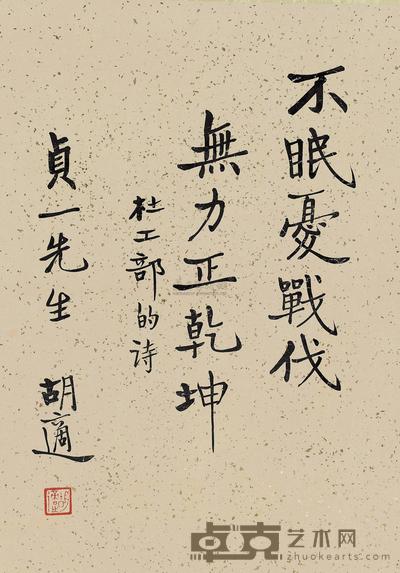 不眠憂戰伐
無力正乾坤
杜工部的诗
貞一先生
胡適
卓克艺术网
zhuokearts.com